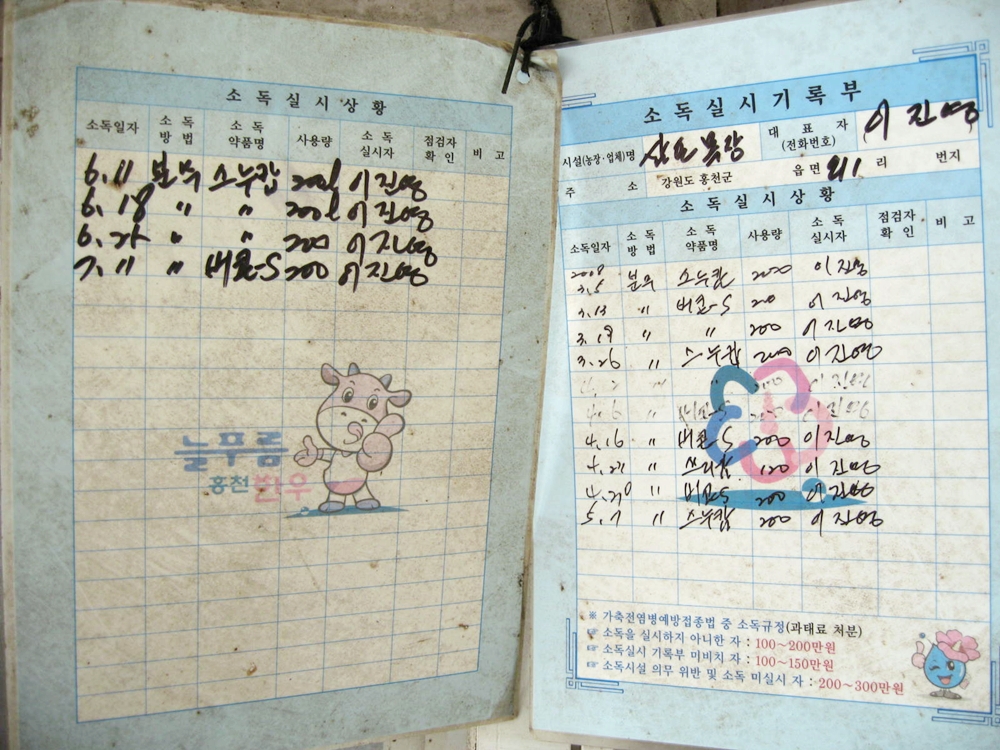 소독실시상황
소독일자 소독방법 소독약품명 사용량 소독실시자 점검자확인 비고
6.11 분무 스누캅 200l 이진영
6.18 〃 〃 200l 이진영
6. 〃 〃 200 이진영
7.11 〃 버콘-S 200 이진영
늘푸름
홍천한우
소독실시기록부
시설(농장·업체)명 목장 대표자(전화번호) 이진영
주소 강원도 홍천군 읍면 리 번지
소독실시상황
소독일자 소독방법 소독약품명 사용량 소독실시자 점검자확인 비고
3.5 분무 스누캅 200 이진영
3.13 〃 버콘-S 20 이진영
3.19 〃 〃 200 이진영
3.26 〃 스누캅 200 이진영
4.2 〃 이진영
4.6 〃 버콘-S 이진영
4.16 〃 버콘-S 200 이진영
4.21 〃 120 이진영
4. 〃 버콘-S 200 이진영
5.7 〃 스누캅 200 이진영
※ 가축전염병예방접종법 중 소독규정(과태료 처분)
☞ 소독을 실시하지 아니한 자 : 100~200만원
☞ 소독실시 기록부 미비치 자 : 100~150만원
☞ 소독시설 의무 위반 및 소독 미실시 자 : 200~300만원